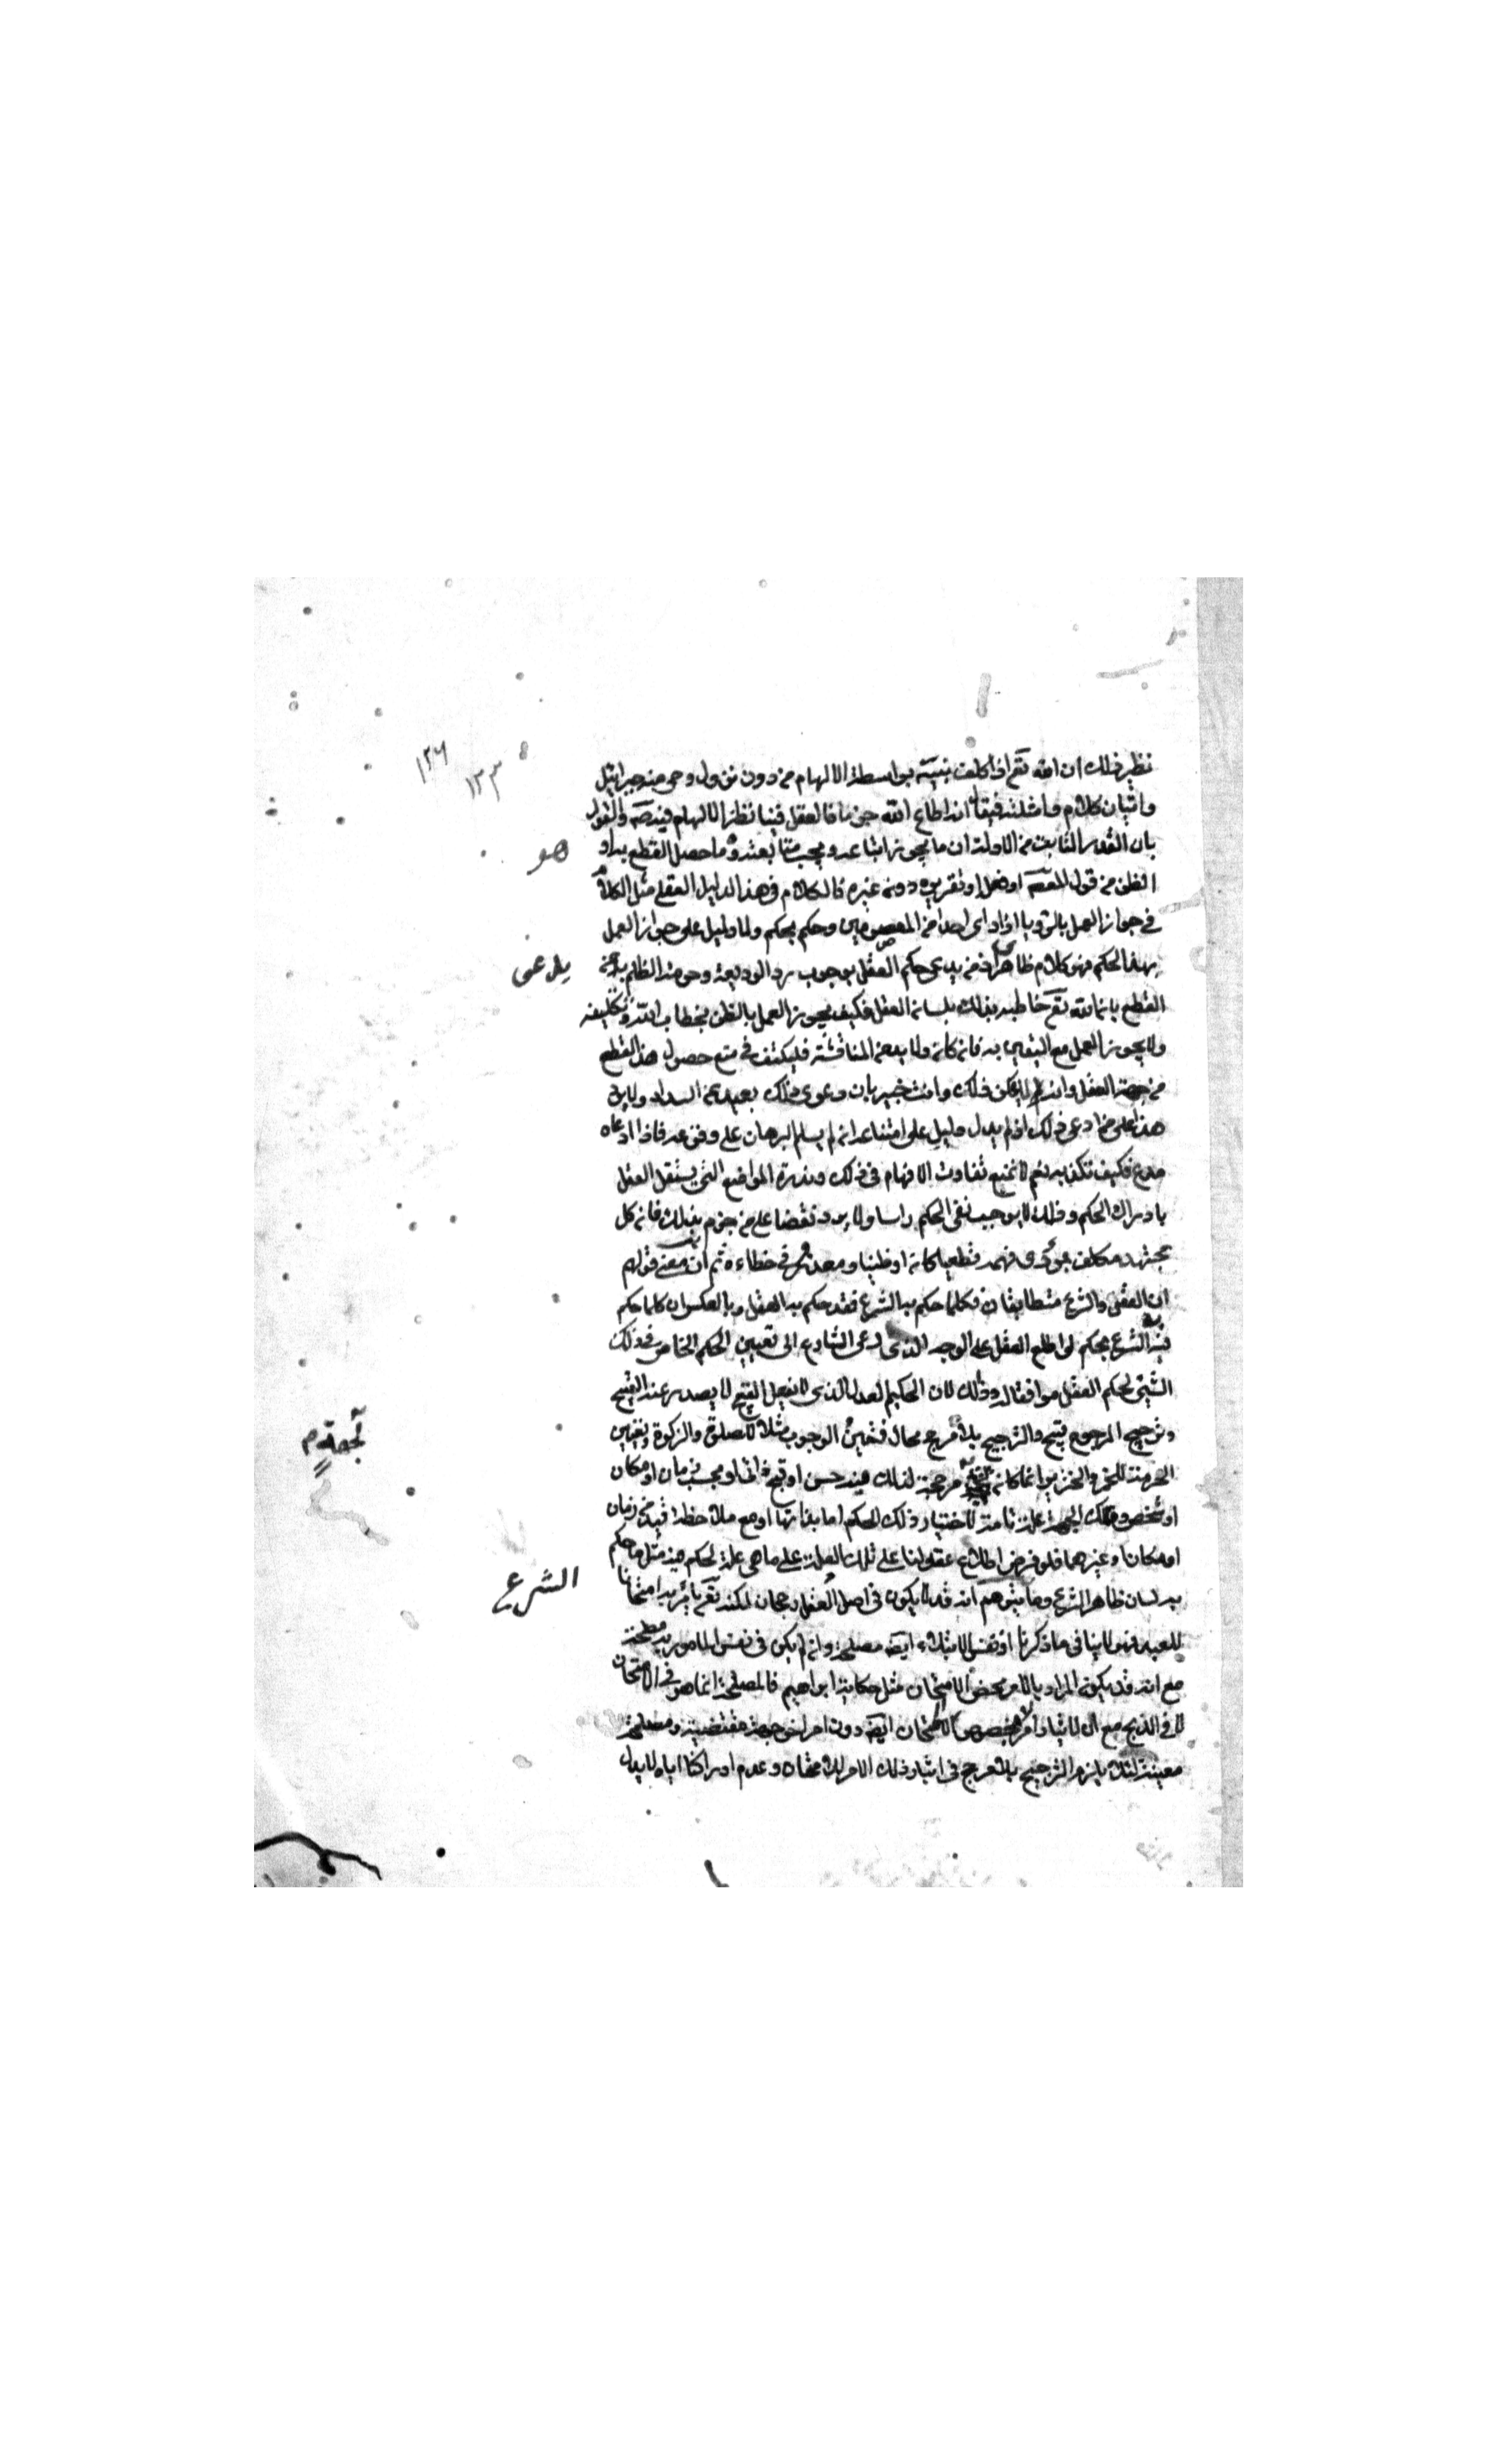 ١٢٦
١٢٣
نظير ذلك ان الله تعم اذا كلف نبيّه بواسطة الالهام من دون نزول وحى من جبرائيل
واتيان كلام وامثله فيقا انه اطاع الله جزما فالعقل فينا نظير الالهام فيه صه والقول
بان القدر الثابت من الادلة ان ما يجوز اتباعه ويجب متابعته وما حصل القطع به او
هو
الظن من قول المعصـ او فعله او تقريره دون غيره فالكلام فى هذا الدليل العقلى مثل الكلام
فى جواز العمل بالرؤيا اذا راى احدا من المعصومين وحكم بحكم ولا دليل على جواز العمل
بهذا الحكم فهو كلام ظاهرى اذ من يدعى حكم العقل بوجوب رد الوديعة وحرمة الظلم يدعى
يدعى
القطع بان الله تعم خاطبه بذلك بلسان العقل فكيف يجوز العمل بالظن بخطاب الله وتكليفه
ولا يجوز العمل مع اليقين به فان كان ولا بد من المناقشة فليكتف فى منع حصول هذا القطع
من جهة العقل وانه لا يمكن ذلك وانت خبير بان دعوى ذلك بعيد عن السداد ولا يرد
هذا على من ادعى ذلك اذ لم يدل دليل على امتناعه ان لم يسلم البرهان على وفق عه فاذا ادعاه
مدع فكيف تكذبه نعم لا نمنع تفاوت الافهام فى ذلك وندرة المواضع التى يستقل العقل
بادراك الحكم وذلك لا يوجب نفى الحكم راسا ولا يرد نقضا على من جزم بذلك فان كل
مجتهد مكلف بمؤدى فهمه قطعيا كان او ظنيا ومعذور فى خطاءه ثم ان معنى قولهم
ان العقل والشرع متطابقان فكلما حكم به الشرع فقد حكم به العقل وبالعكس ان كلما حكم
فيه الشرع بحكم لو اطلع العقل على الوجه الذى دعى الشارع الى تعيين الحكم الخاص فى ذلك
الشيئ لحكم العقل موافقا له وذلك لان الحكيم العدل الذى لا يفعل القبيح لا يصدر عنه القبيح
وترجيح المرجوح قبيح والترجيح بلا مرجح محال فتعيين الوجوب مثلا للصلوة والزكوة وتعيين
الحرمة للخمر والخنزير انما كان لجهة مرجحة لذلك فيه حسن او قبح ذاتى او بحسب زمان او مكان
لجهة م
او شخص وتلك الجهة علة تامة لاختيار ذلك الحكم اما بذاتها او مع ملاحظة قيد من زمان
او مكان او غيرهما فلو فرض اطلاع عقولنا على تلك العلة على ما هى علة لحكم فيه مثل ما حكم
به لسان ظاهر الشرع وما يتوهم انه قد لا يكون فى اصل الفعل رجحان لكنه تعم يأمر به امتحانا
الشرع
للعبد فهو لا ينافى ما ذكرنا اذ نفس الابتلاء ايضه مصلحة وان لم يكن فى نفس المامور به مصلحة
مع انه قد يكون المراد بالامر محض الامتحان مثل حكاية ابراهيم فالمصلحة انما هو فى الامتحان
لا فى الذبح مع ان لاختيار امر بخصوص الامتحان ايضه دون امر اخر جهة مقتضية ومصلحة
معينة لئلا يلزم الترجيح بلا مرجح فى اختيار ذلك الامر للامتحان وعدم ادراكنا اياه لا يدل